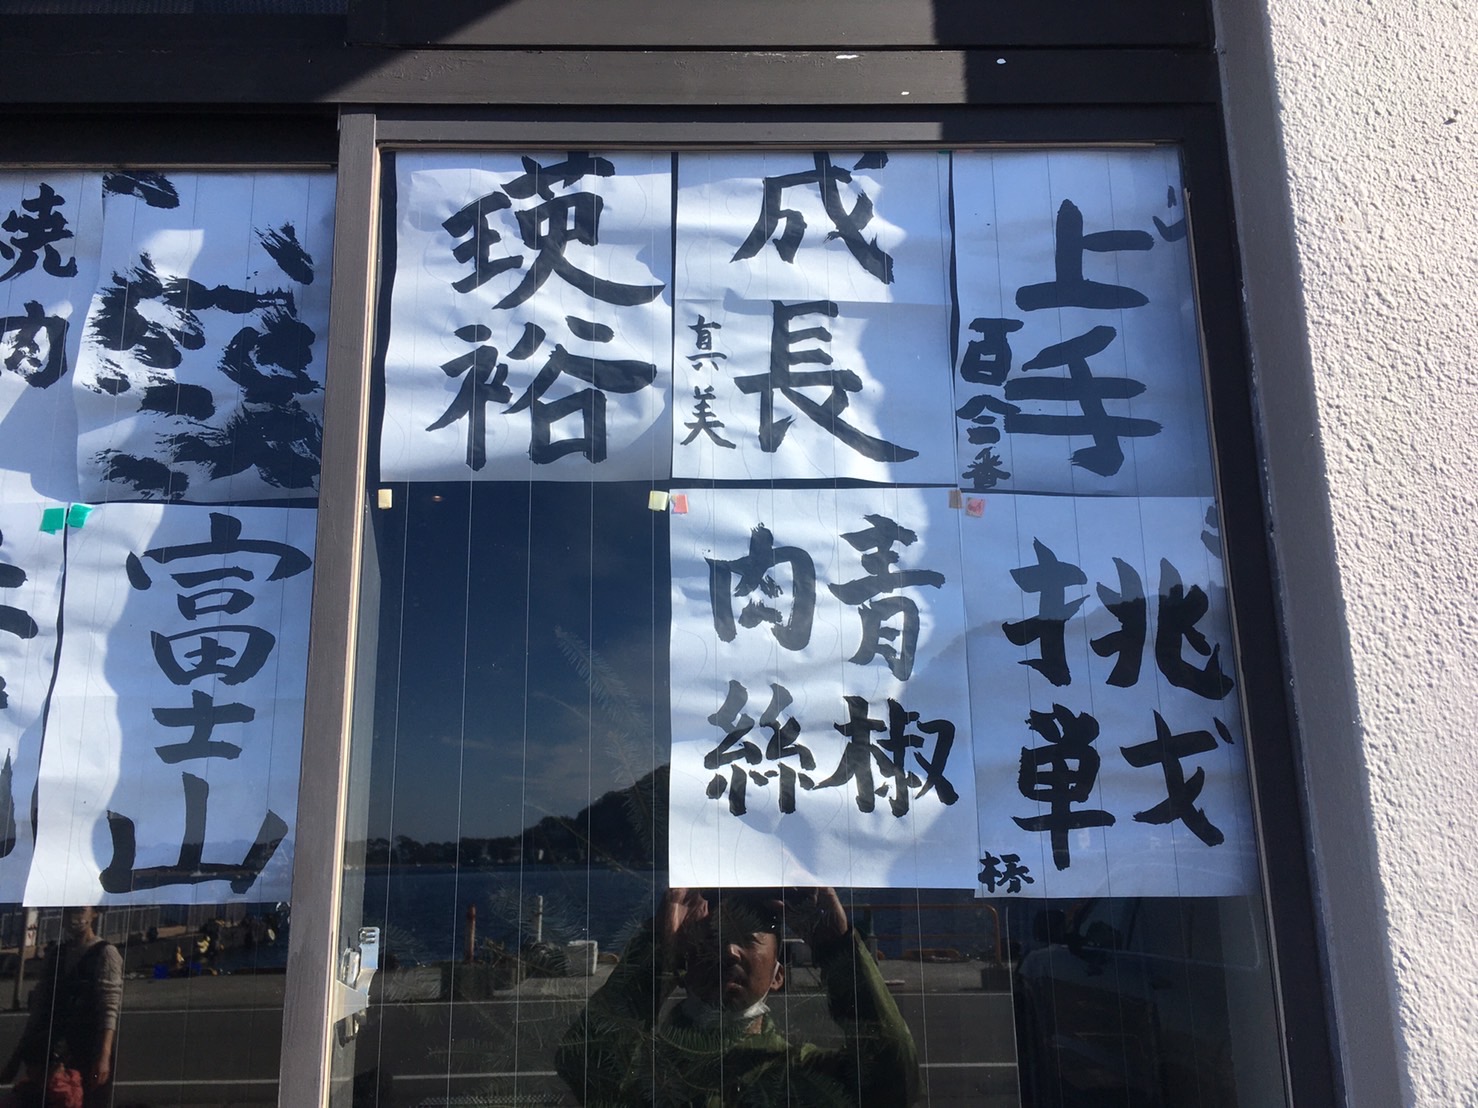 上手
百合香
成長
真美
瑛裕
焼肉
挑戦
椿
青椒
肉絲
富士山